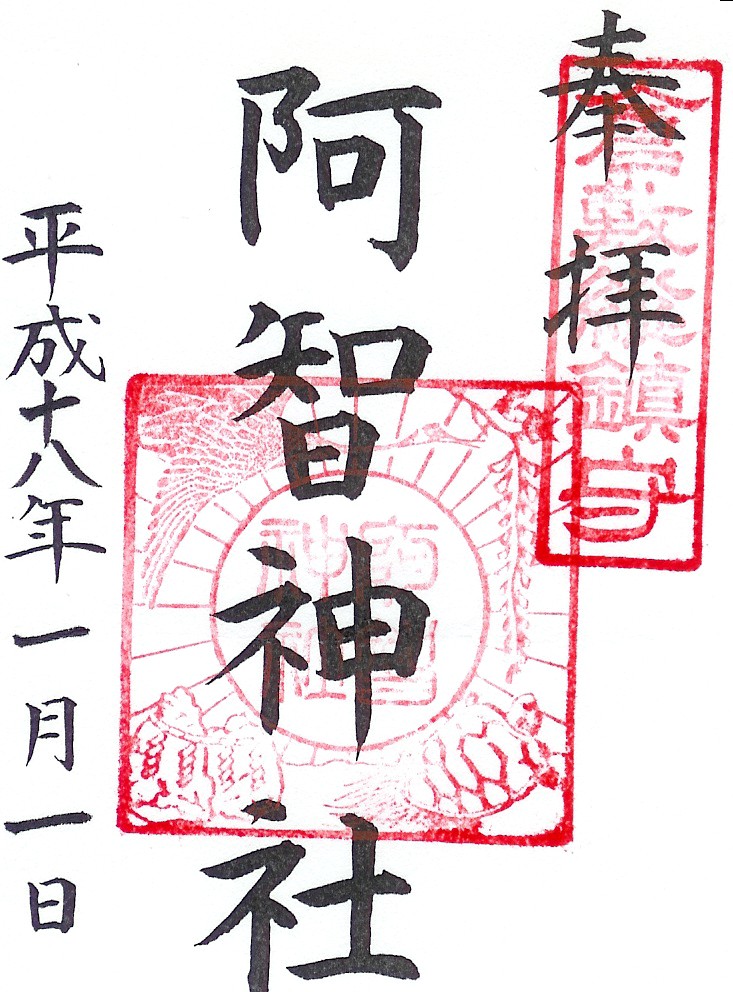 奉拝
倉敷総鎮守
阿智神社
阿智神社
平成十八年一月一日